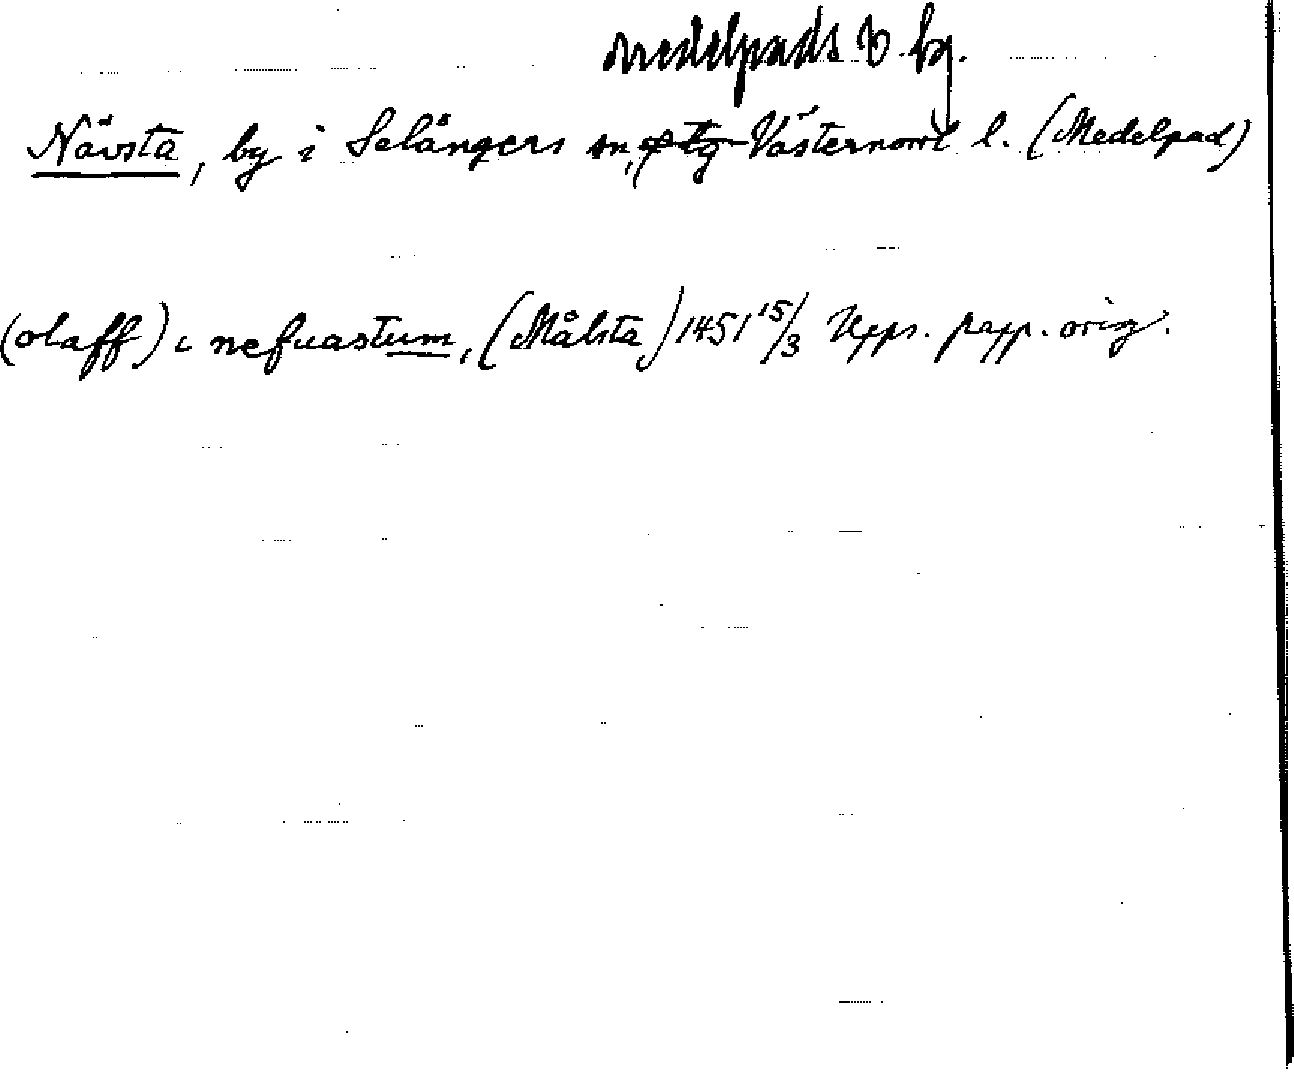 Medelpads v. tg.
Nävsta, by i Selångers sn, Västernorrl l. (Medelpad)
(olaff) i nefuastum, (Målsta) 1451 15/3 Upps. papp. orig.